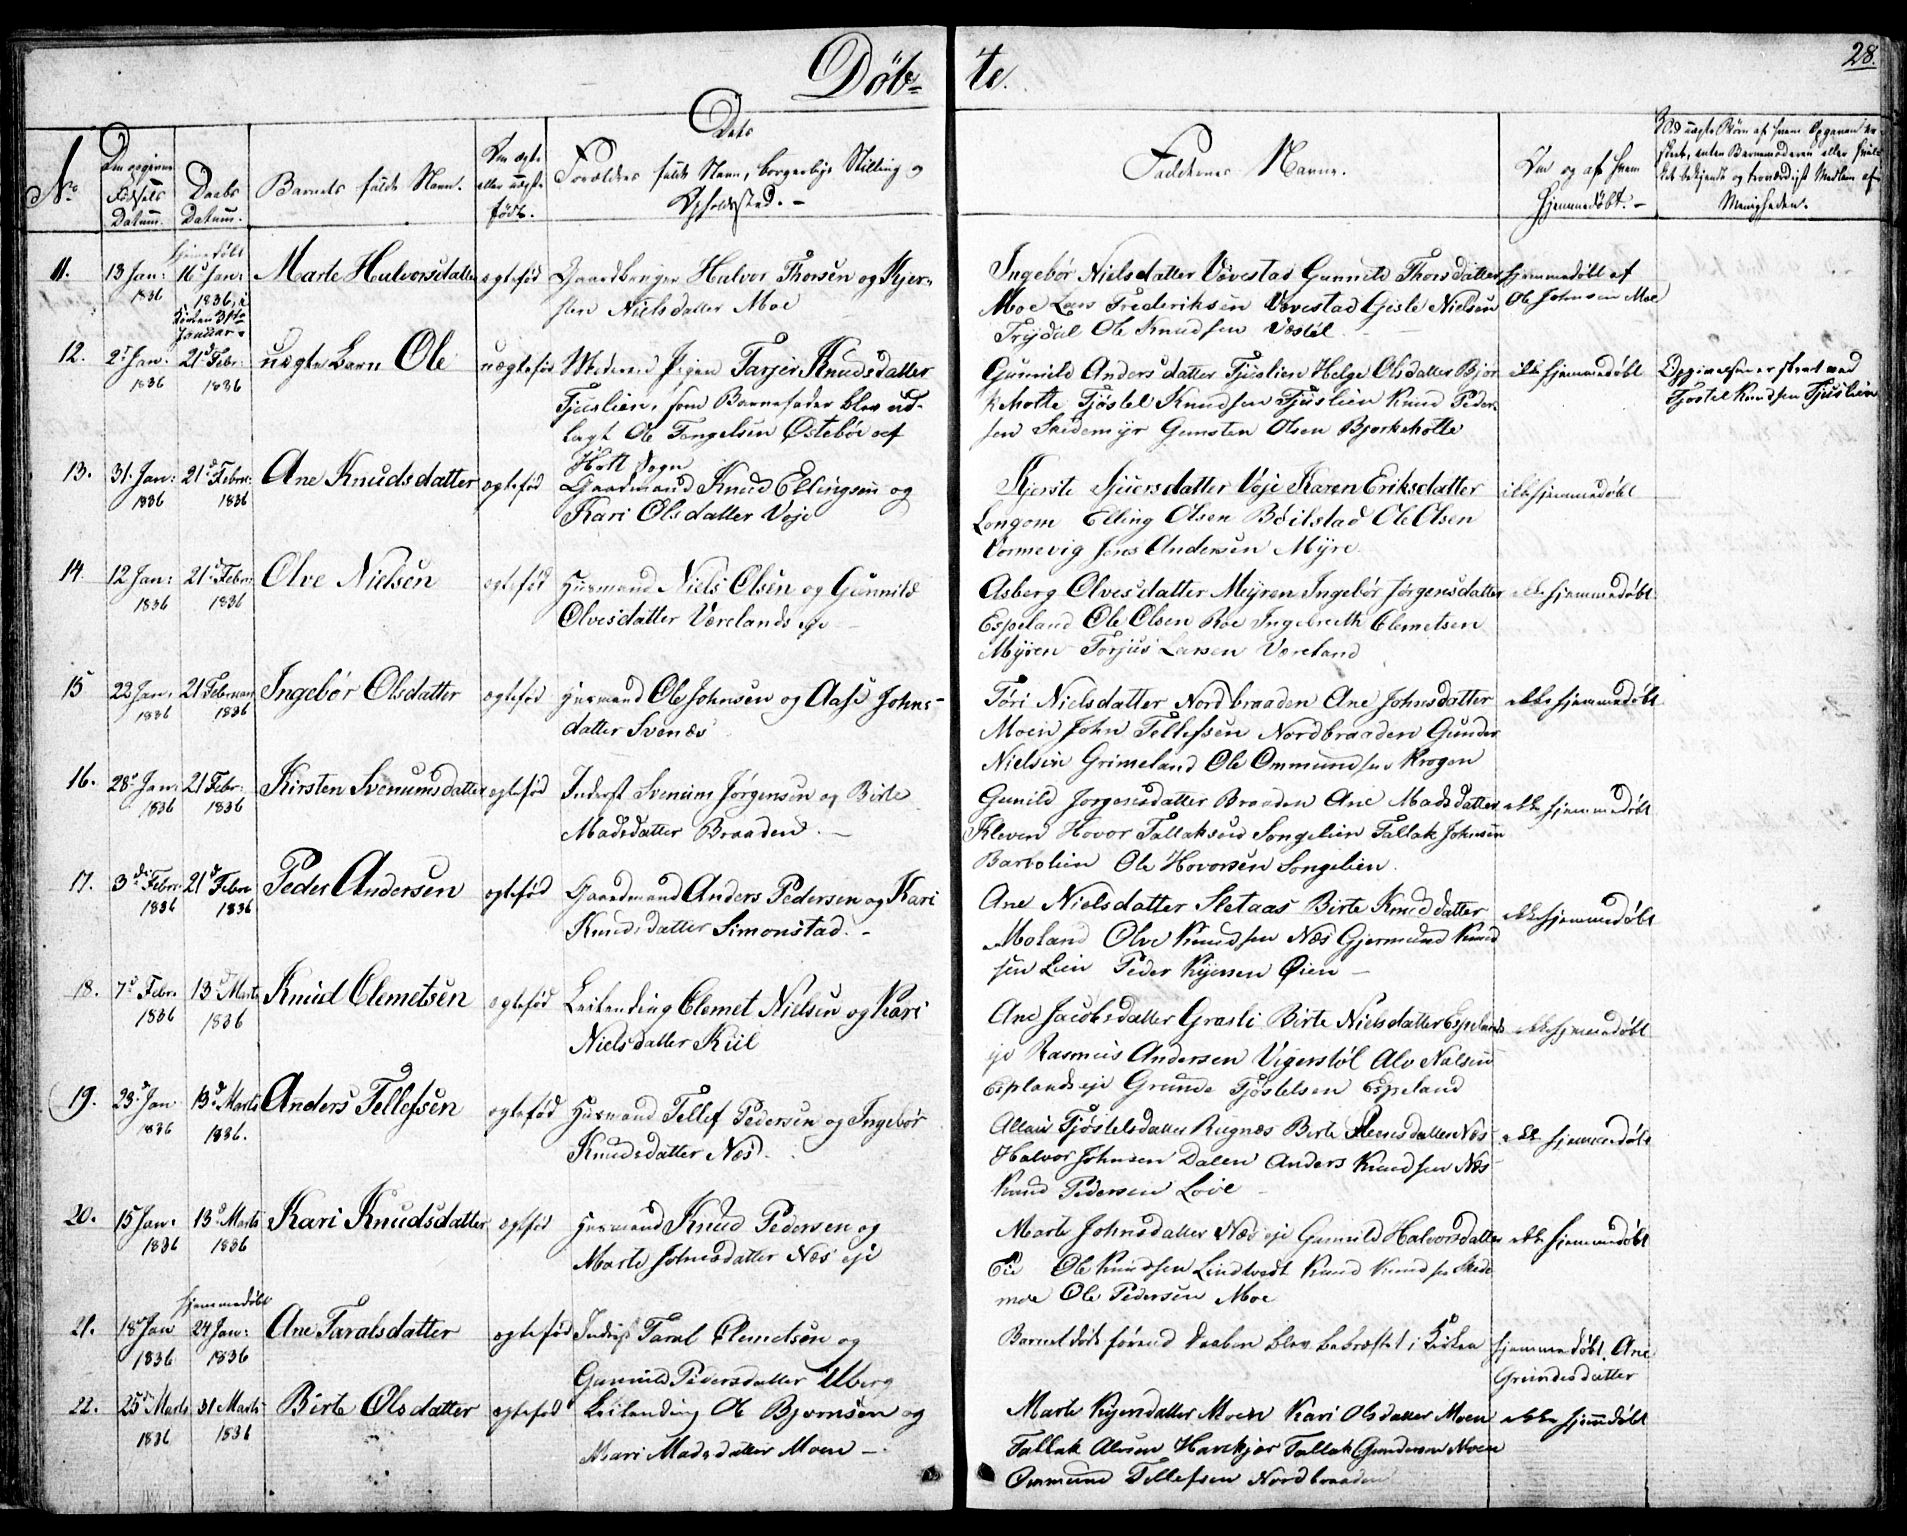 Døb=
te.
28.
No.
Den opgivne Fødsels Datum.
Daabs Datum.
Barnets fulde Navn.
Om ægte eller uægte født.
Dets
Forældres fulde Navn, borgerlige Stilling og
Opholdssted. -
Faddernes Navne.
Om og af hvem
Hjemmedøbt. -
Menigheden.
11.
13 Jan: 1836
hjemedøbt 16 Jan: 1836, i Kirken 31te Januar
Marte Halvorsdatter
ægtefød
Gaardbruger Halvor Thorsen og Kjer-
sten Nielsdatter Moe
Ingebør Nielsdatter Vovestad Gunnild Thorsdatter
Moe Lars Frederiksen Vovestad Gisle Nielsen
Trydal Ole Knudsen Væstøl
hjemmedøbt af
Ole Johnsen Moe
12.
2d Jan: 1836
21d Febr: 1836
uægte Barn Ole
uægtefød
Moderen Pigen Tarjer Knudsdatter
Tjuslien, som Barnefader blev ud-
lagt Ole Tengelsen Østebøe af
Holt Sogn
Gunnild Andersdatter Tjuslien Helge Olsdatter Bjor
keholte Tjøstel Knudsen Tjuslien Knud Peder-
sen Skedemyr Gunsten Olsen Bjorkeholte
ikke hjemmedøbt
Opgivelsen er skeet ved
Tjøstel Knudsen Tjuslien
13.
31. Jan: 1836
21d Febru: 1836
Ane Knudsdatter
ægtefød
Gaardmand Knud Ellingsen og
Kari Olsdatter Voje
Kjerste Sjursdatter Voje Karen Eriksdatter
Longom Elling Olsen Böilstad Ole Olsen
Vormevig Jens Andersen Myre
ikke hjemmedøbt
14
12 Jan: 1836
21d Febr: 1836
Olve Nielsen
ægtefød
Husmand Niels Olsen og Gunnild
Olvesdatter Værelands eje
Asberg Olvesdatter Myren Ingebør Jørgensdatter
Espeland Ole Olsen Roe Ingebreth Clemetsen
Myren Torjus Larsen Væreland
ikke hjemmedøbt
15
22 Jan. 1836
21 Februar 1836
Ingebör Olsdatter
ægtefød
Husmand Ole Johnsen og Aase Johns-
datter Svenæs
Töri Nielsdatter Nordbraaden Ane Johnsdatter
Moen John Tellefsen Nordbraaden Gunder
Nielsen Grimeland Ole Ommundsen Krogen
ikke hjemmedøbt
16.
28d Jan: 1836
21 Febr: 1836
Kirsten Svenumsdatter
ægtefød
Inderst Svenum Jørgensen og Birte
Madsdatter Braaden. -
Gunild Jorgensdatter Braaden Ane Madsdatter
Kleven Hovor Tallaksen Songelien Tallak Johnsen
Barbolien Ole Hovorsen Songelien.
ikke hjemmedøbt
17.
3de Febr: 1836
21d Febr 1836
Peder Andersen
ægtefød
Gaardmand Anders Pedersen og Kari
Knudsdatter Simonstad. -
Ane Nielsdatter Sletaas Birte Knudsdatter
Moland Olve Knudsen Næs Gjermund Knud
sen Lien Peder Kjersen Øien -
ikke hjemmedøbt
18.
7d Febr. 1836
13d Marts 1836
Knud Clemetsen
ægtefød
Leilending Clemet Nielsen og Kari
Nielsdatter Kiil
Ane Jacobsdatter Grasli Birte Nielsdatter Espelands
eje Rasmus Andersen Vigerstøl Alv Nielsen
Esplands eje Grunde Tjøstelsen Espeland
ikke hjemmedøbt
19.
23d Jan 1836
13d Marts 1836.
Anders Tellefsen
ægtefød
Husmand Tellef Pedersen og Ingebør
Knudsdatter Næs.
Tjøstelsdatter Rugnæs Birte Næs
Halvor Johnsen Dalen Anders Knudsen Næs
Knud Pedersen
ikke hjemmedøbt
20.
15 Jan. 1836
13d Marts 1836
Kari Knudsdatter
ægtefød
Husmand Knud Pedersen og
Marte Johnsdatter Næs eje
Marte Johnsdatter Næs eje Gunnild Halvorsdatter
Eie Ole Knudsen Lindtvedt Knud Knudsen Skede
moe Ole Pedersen Moe
ikke hjemmedøbt
21.
18d Jan 1836
hjemmedøbt 24 Jan: 1836
Ane Taralsdatter
ægtefød
Inderst Taral Clemetsen og
Gunnild Pedersdatter Uberg
Barnet døde førend Daaben blev bekræftet i Kirken
hjemmedøbt. Ane
Grundesdatter
22.
25de Marts 1836
31 Marts 1836
Birte Olsdatter
ægtefød
Leilending Ole Bjornsen og
Mari Madsdatter Moen -.
Marte Kjersdatter Moen Kari Olsdatter Moen
Tallak Alvsen Havekjær Tallak Gundersen Moen
Ommund Tellefsen Nordbraaden
ikke hjemdøbt